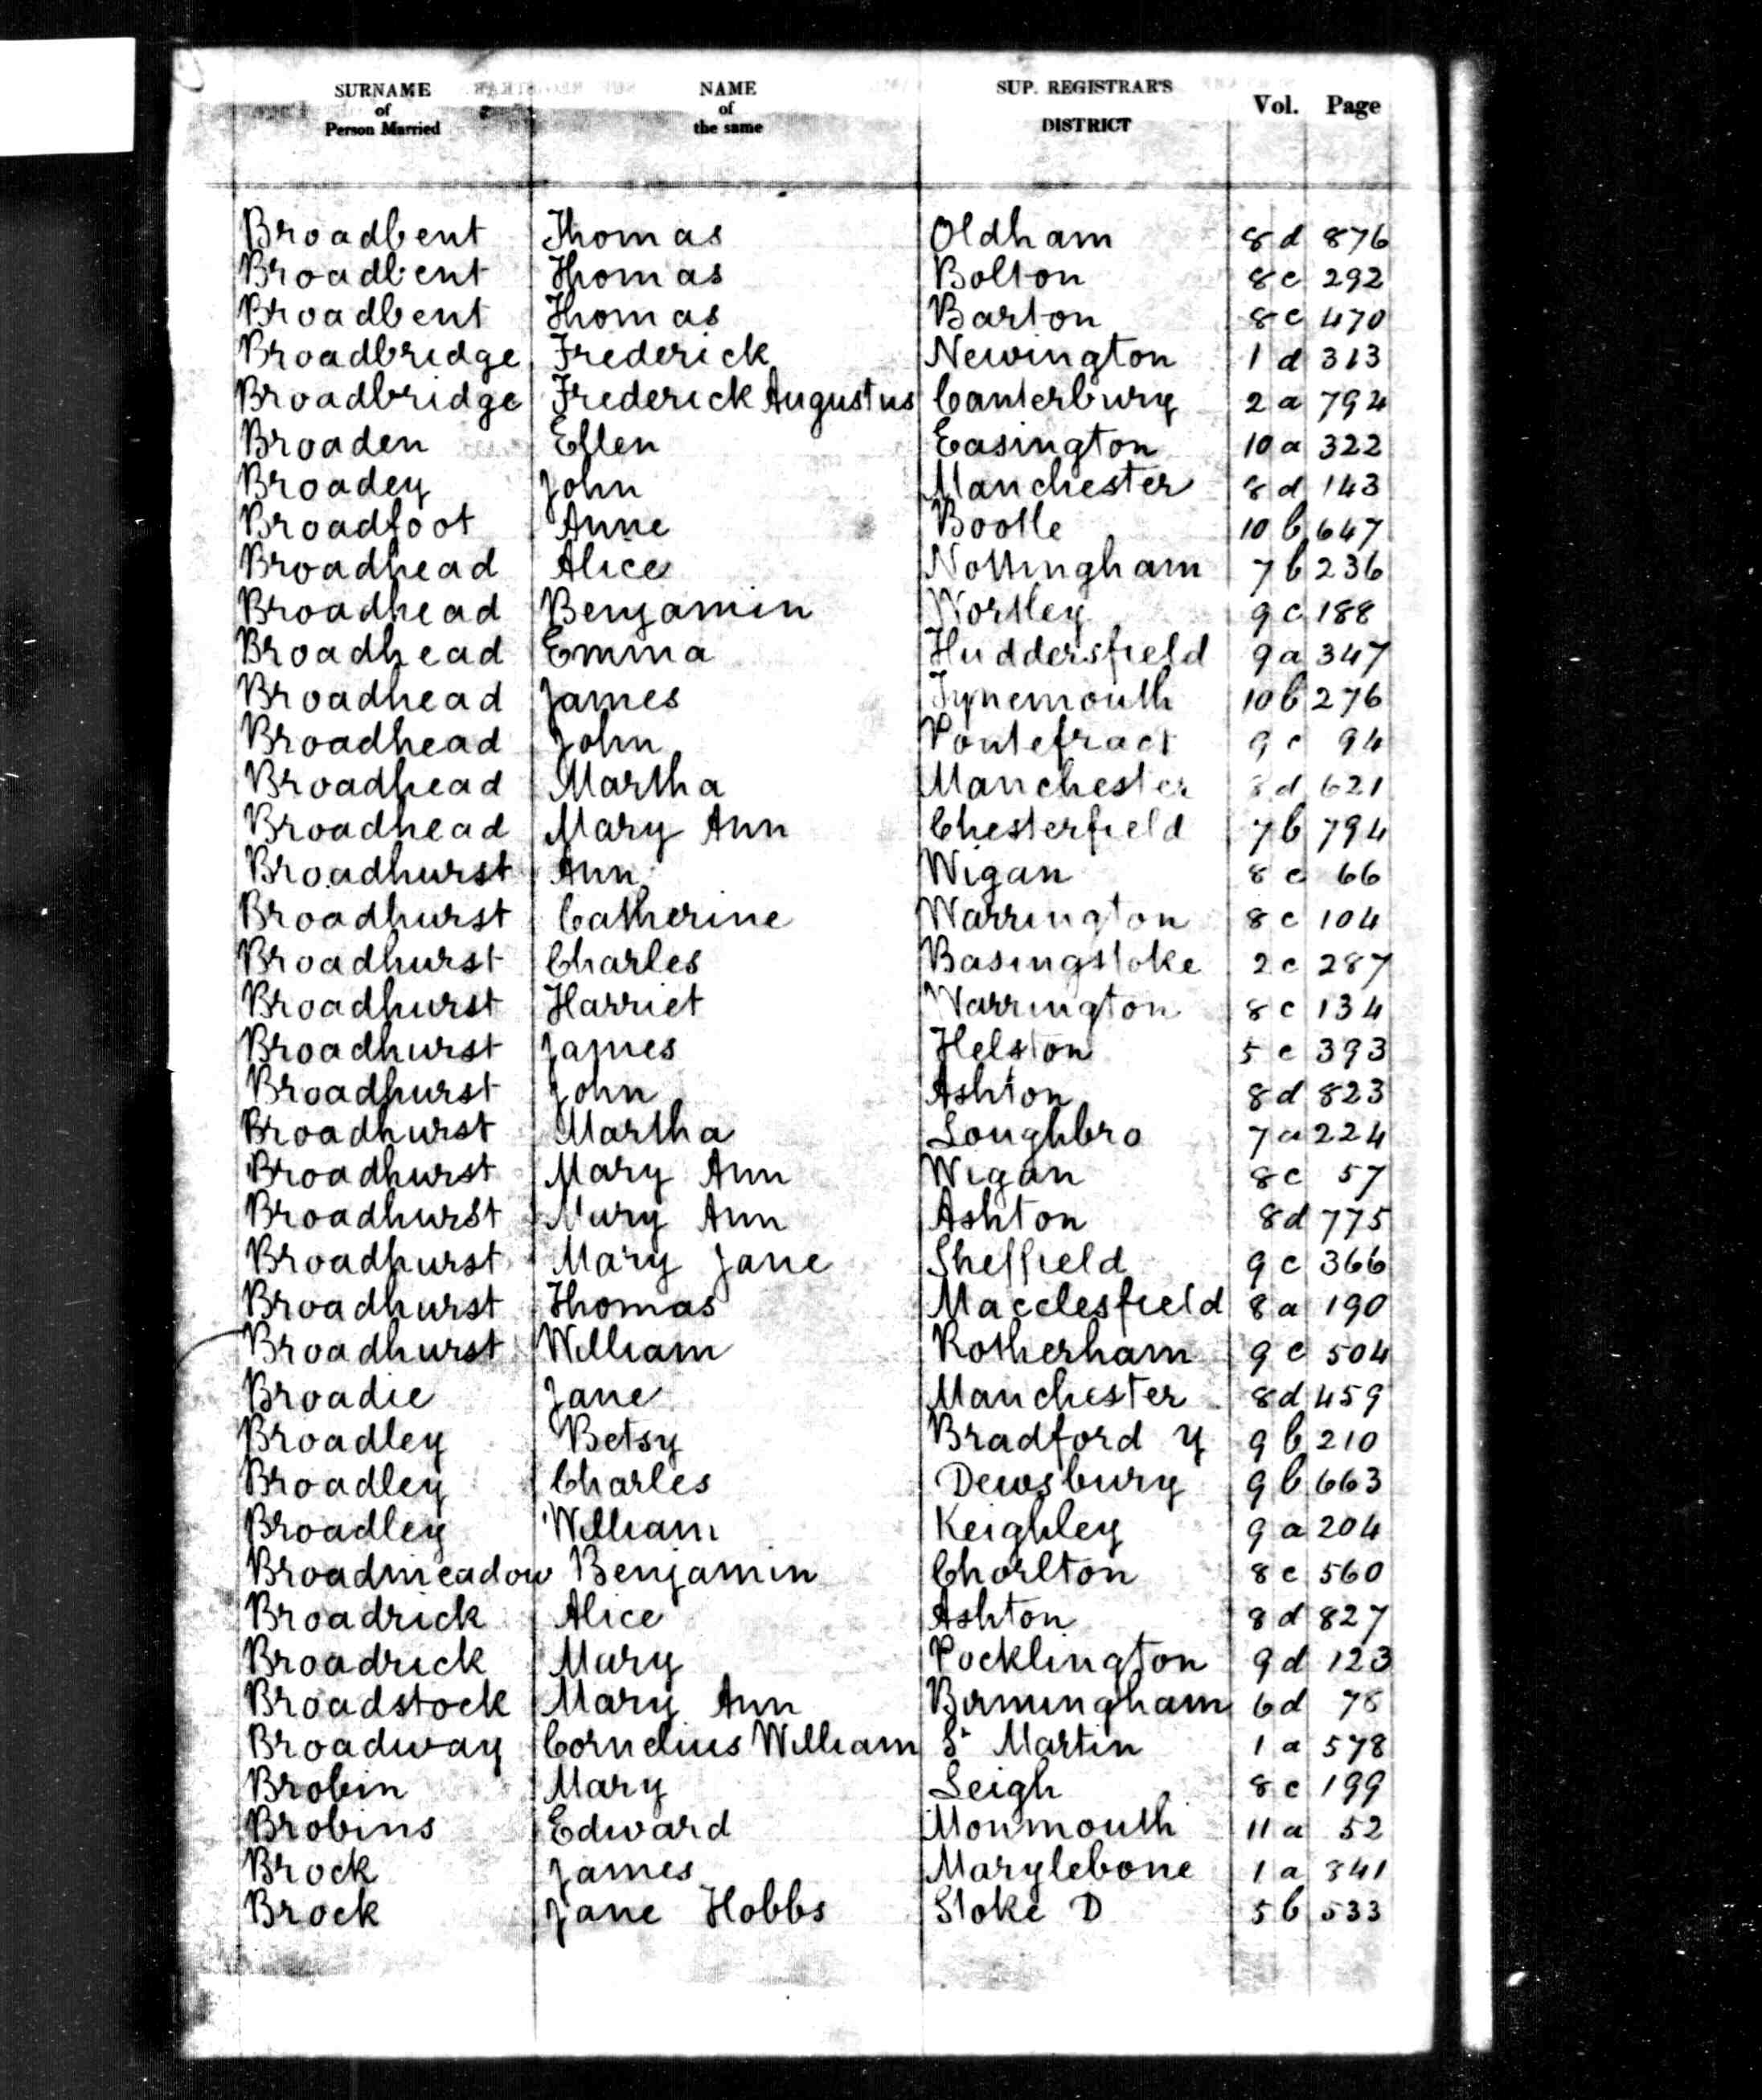 SURNAME of Person Married NAME of the same SUP. REGISTRAR'S DISTRICT Vol. Page
Broadbent Thomas Oldham 8d 876
Broadbent Thomas Bolton 8c 292
Broadbent Thomas Barton 8c 470
Broadbridge Frederick Newington 1d 313
Broadbridge Frederick Augustus Canterbury 2a 794
Broaden Ellen Easington 10a 322
Broadey John Manchester 8d 143
Broadfoot Anne Bootle 10b 647
Broadhead Alice Nottingham 7b 236
Broadhead Benjamin Wortley 9c 188
Broadhead Emma Huddersfield 9a 347
Broadhead James Tynemouth 10b 276
Broadhead John Pontefract 9c 94
Broadhead Martha Manchester 8d 621
Broadhead Mary Ann Chesterfield 7b 794
Broadhurst Ann Wigan 8c 66
Broadhurst Catherine Warrington 8c 104
Broadhurst Charles Basingstoke 2c 287
Broadhurst Harriet Warrington 8c 134
Broadhurst James Helston 5c 393
Broadhurst John Ashton 8d 823
Broadhurst Martha Loughbro 7a 224
Broadhurst Mary Ann Wigan 8c 57
Broadhurst Mary Ann Ashton 8d 775
Broadhurst Mary Jane Sheffield 9c 366
Broadhurst Thomas Macclesfield 8a 190
Broadhurst William Rotherham 9c 504
Broadie Jane Manchester 8d 459
Broadley Betsy Bradford Y 9b 210
Broadley Charles Dewsbury 9b 663
Broadley William Keighley 9a 204
Broadmeadow Benjamin Chorlton 8c 560
Broadrick Alice Ashton 8d 827
Broadrick Mary Pocklington 9d 123
Broadstock Mary Ann Birmingham 6d 78
Broadway Cornelius William St Martin 1a 578
Brobin Mary Leigh 8c 199
Brobins Edward Monmouth 11a 52
Brock James Marylebone 1a 841
Brock Jane Hobbs Stoke D 5b 533